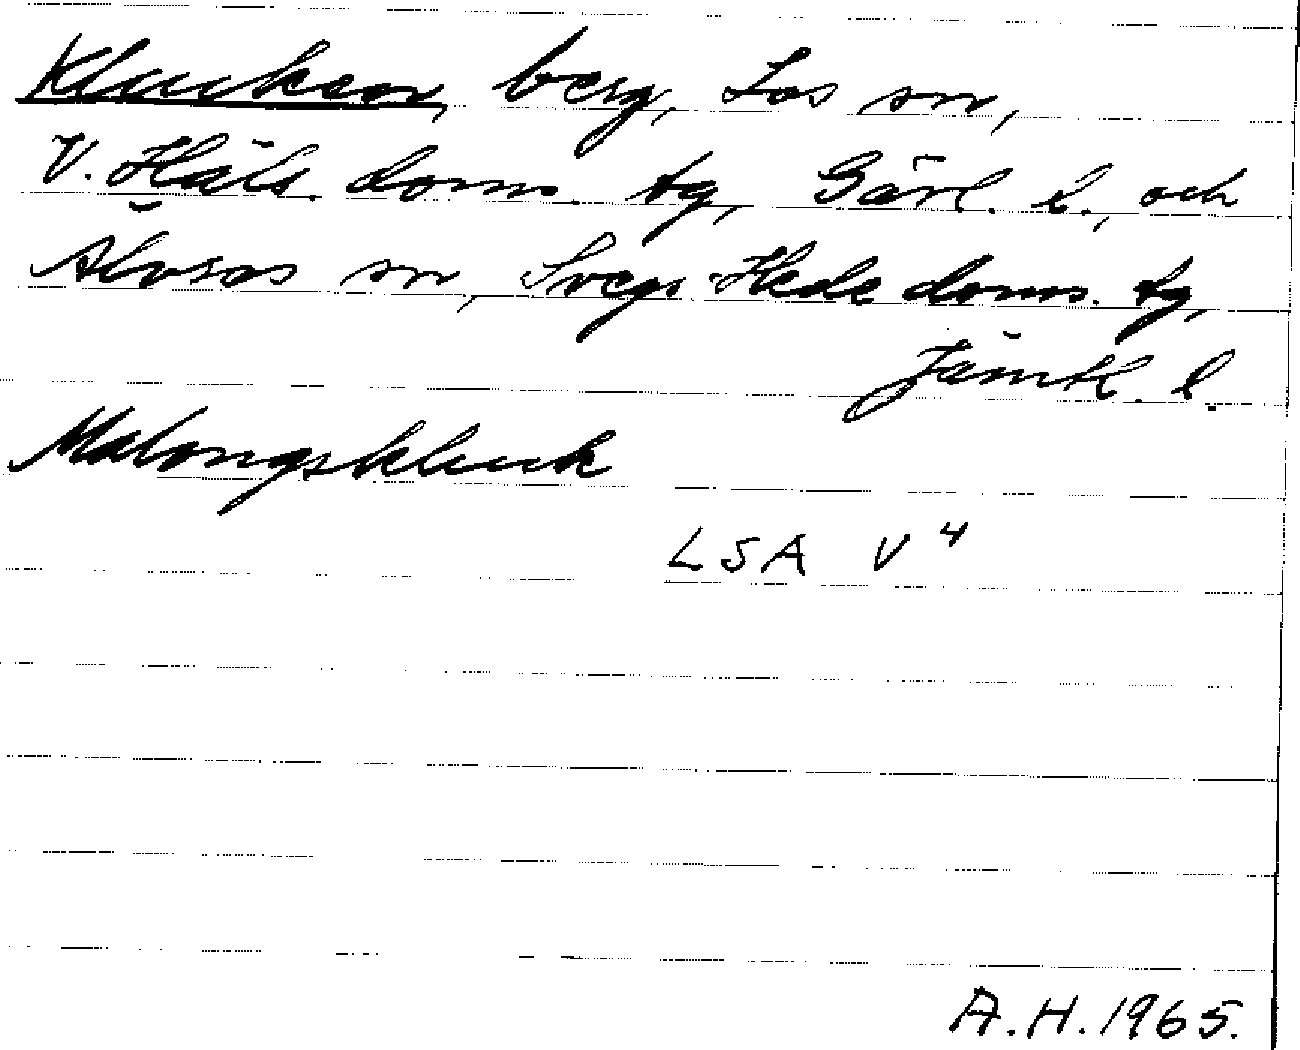 Klucken, berg, Los sn,
V. Häls. doms. tg, Gävl. l., och
Älvros sn, Svegs-Hede doms. tg,
Jämtl. l.
Malongskluck
LSA V 4
A.H. 1965.